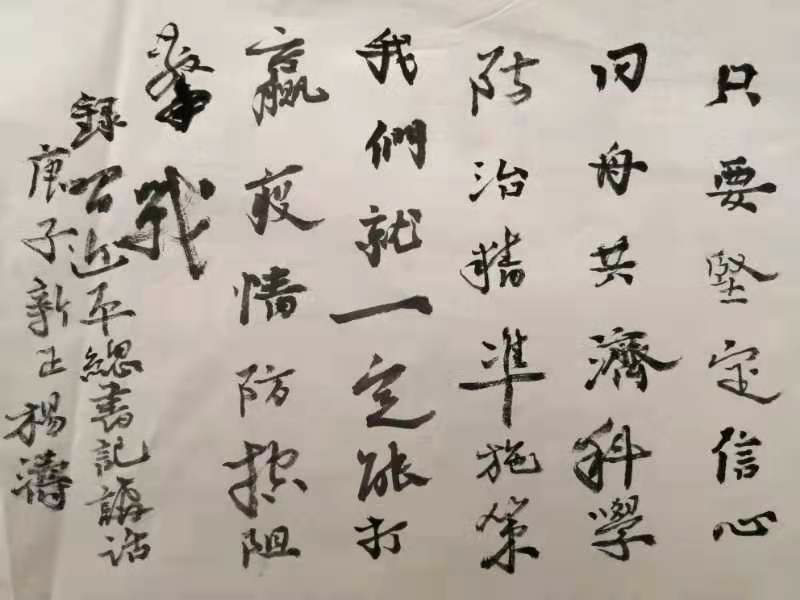 只要堅定信心
同舟共濟科學
防治精準施策
我們就一定能打
贏疫情防控阻
擊戰
錄習近平總書記講話
庚子新正楊濤